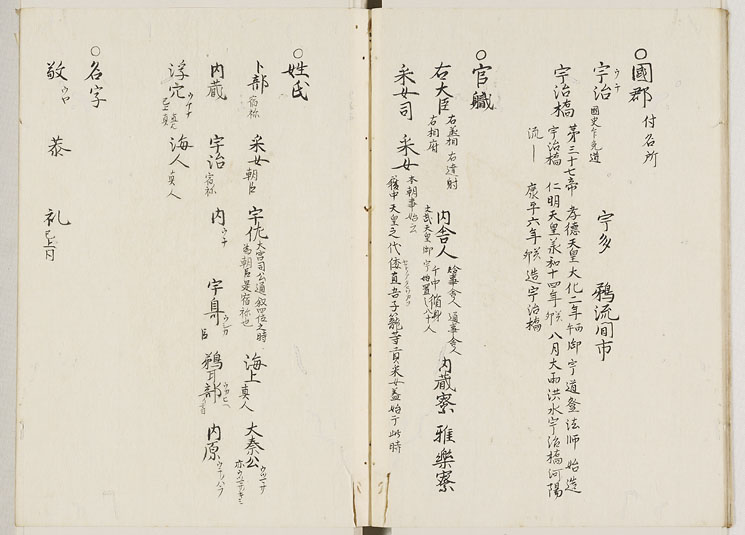 ○國郡 付名所
宇治 ウチ 國史乍兎道 宇多 鵜流間市
宇治橋 第三十七帝 孝德天皇大化二年 丙午 御宇道登法師始造
宇治橋 仁明天皇美和十四年 癸卯 八月大雨洪水宇治橋河陽
流一 康平六年 癸卯 造宇治橋
○官職
右大臣 右丞相 右僕射 右相府 内舎人 大武天皇御宇始置 八十人 内蔵寮 雅樂寮
采女司 采女 本朝事始云
雄中天皇之代倭直吾子籠等貢采女蓋始于此時
○姓氏
卜部 宿祢 采女 朝臣 宇佐 大宮司公通叙四位之時 為朝臣是宿祢也 海上 真人 大秦公 ウツマサ
内蔵 宇治 宿祢 内 ウチ 宇努 臣 鵜甘部 ウカヒヘ 首 内原 ウチノハラ
浮穴 ウケアナ 海人 真人
○名字
敬 ウロ 恭 礼 已上同